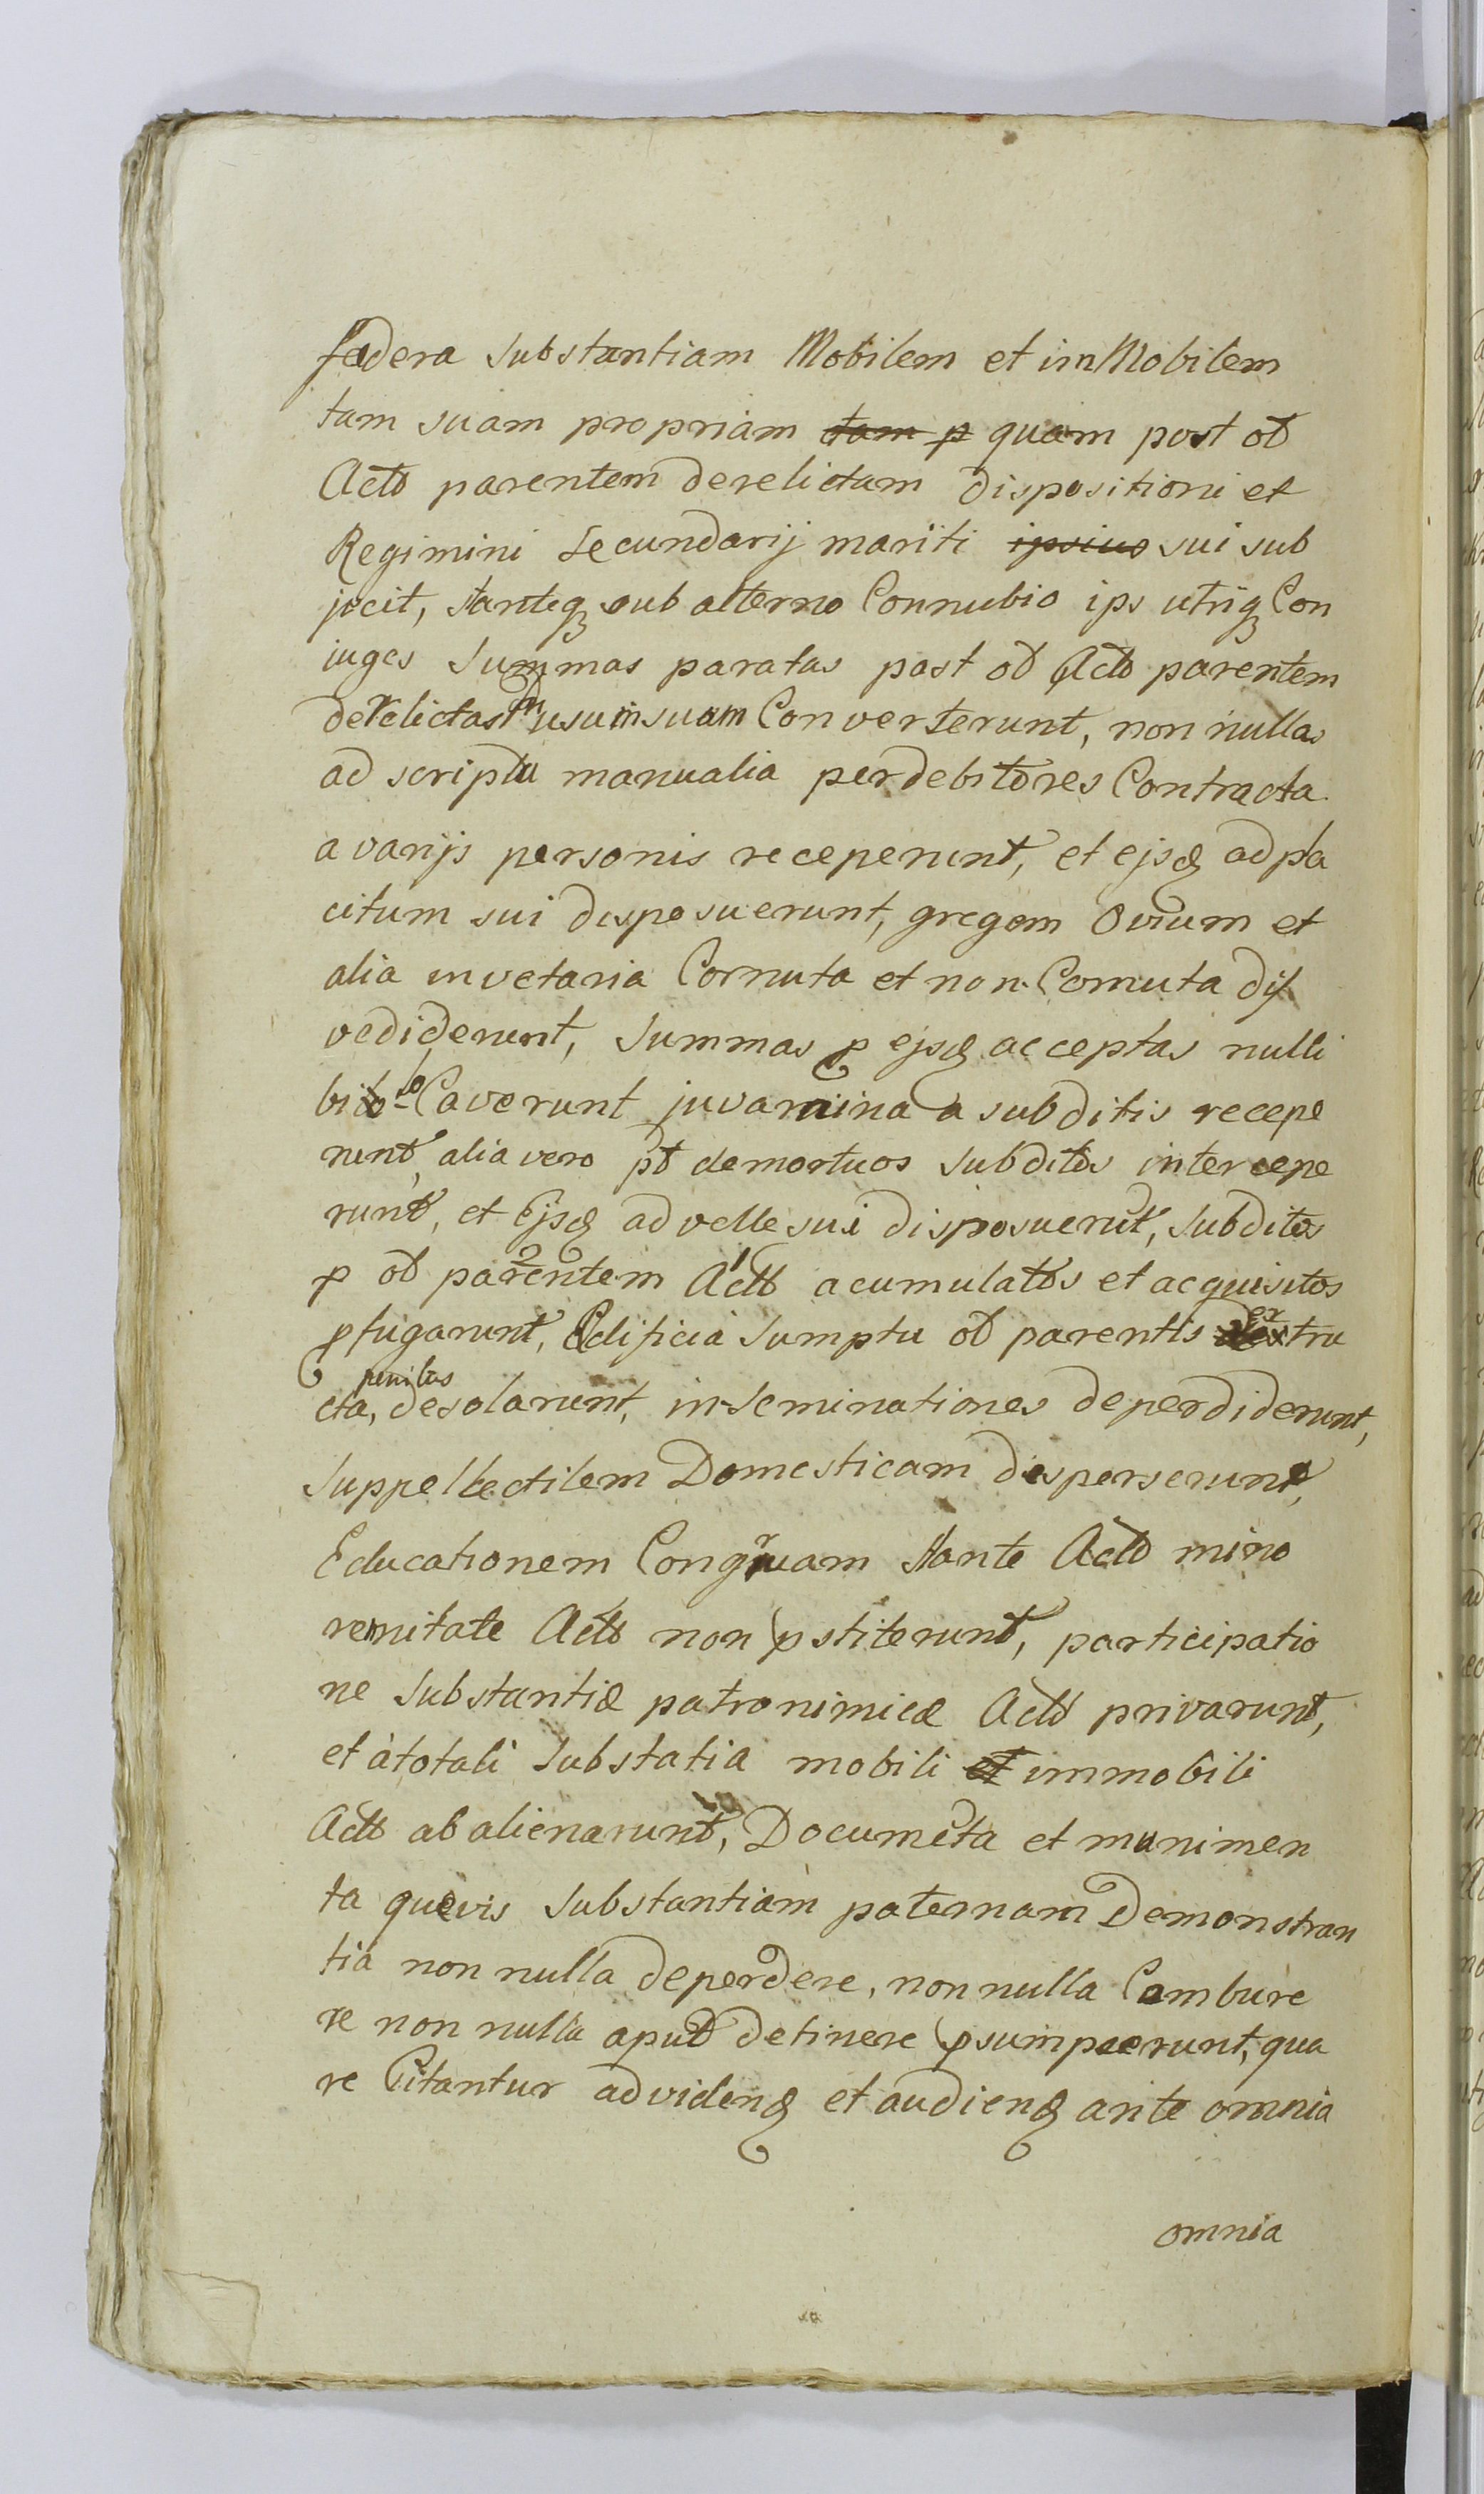 fædera substantiam Mobilem et imMobilem
tam suam propriam tam p quam post ob
Actō parentem derelictam dispositioni et
Regimini secundarij mariti ipsius sui sub
jecit, stanteq sub alterno Connubio ips utriq Con
iuges summas paratas post ob Actō parentem
derelictas in usum suam Converterunt, non nullas
ad scripta manualia per debitores Contracta
a varijs personis receperunt, et ejsd ad pla
citum sui disposuerunt, gregem Ovium et
alia invetaria Cornuta et non Cornuta dis
vediderunt, summas p ejsd acceptas nulli
bi lo Caverunt juvamina a subditis recepe
runt, alia vero pt demortuos subditos intercepe
runt, et Ejsd ad velle sui disposuerūt, subditos
p ob parentem Actō acumulatos et acquisitos
pfugarunt, Edificia sumptu ob parentis extru
cta, penitus desolarunt, in-seminationes deperdiderunt,
suppellectilem Domesticam disperserunt,
Educationem Congruam stante Actō mino
rennitate Actō non pstiterunt, participatio
ne substantiæ patronimicæ Actō privarunt,
et à totali substatia mobili et immobili
Actō ab alienarunt, Documēta et munimen
ta quævis substantiam paternam Demonstran
tia non nulla deperdere, non nulla Combure
re non nulla apud detinere psumpserunt, qua
re Citantur ad videnḋ et audiend ante omnia
omnia